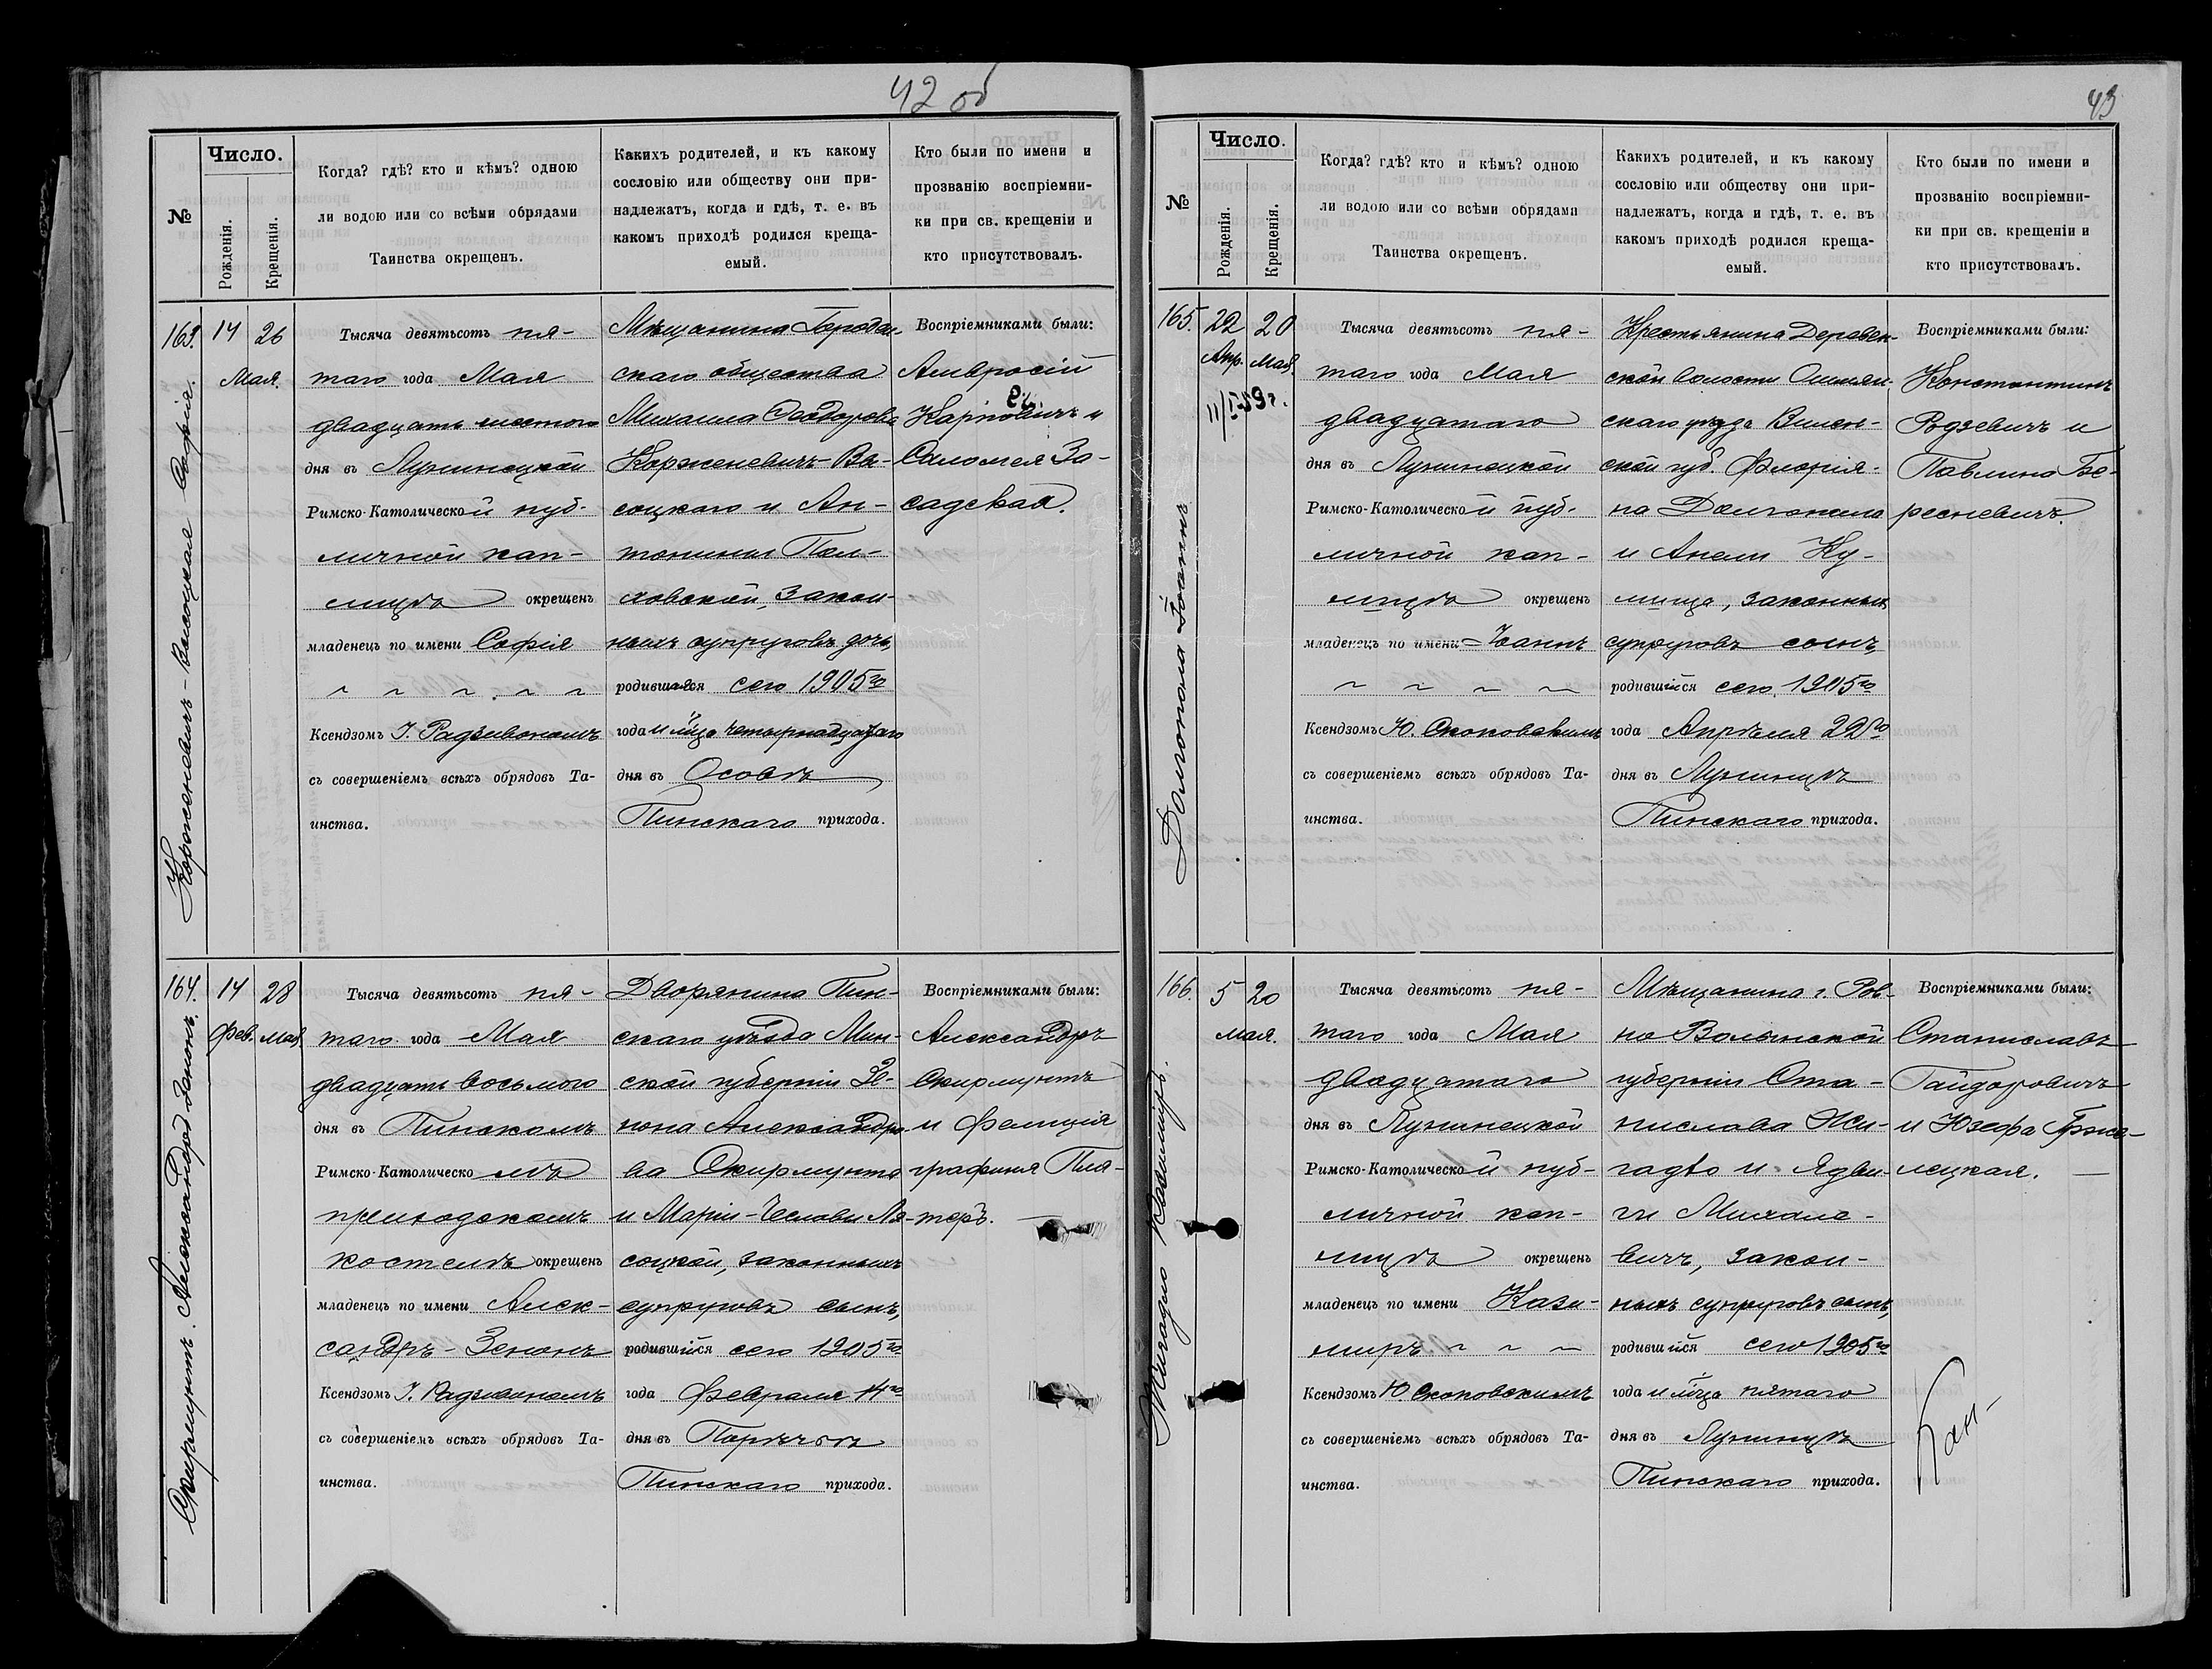 42 об
№
Число.
Рожденія.
Крещенія.
Когда? гдѣ? кто и кѣмъ? одною
ли водою или со всѣми обрядами
Таинства окрещенъ.
Какихъ родителей, и къ какому
сословію или обществу они при-
надлежатъ, когда и гдѣ, т. е. въ
какомъ приходѣ родился креща-
емый.
Кто были по имени и
прозванію воспріемни-
ки при св. крещеніи и
кто присутствовалъ.
163.
14 26
Мая.
Корженевичъ-Высоцкая Софія.
Тысяча девятьсотъ пя-
таго года Мая
двадцать шестого
дня въ Лунинецкой
Римско-Католической пуб-
личной кап-
лицѣ окрещенъ
младенецъ по имени Софія
Ксендзомъ І. Радзивономъ
съ совершеніемъ всѣхъ обрядовъ Та-
инства.
Мѣщанина Городск-
скаго общества
Михаила Ѳеодорова
Корженевичъ-Вы-
соцкаго и Ан-
тонины Пол-
ховской, закон-
ныхъ супруговъ дочь,
родившаяся сего 1905го
года и м̃ца четырнадцатаго
дня въ Осовѣ
Пинскаго прихода.
Воспріемниками были:
Амвросій
Карповичъ и
Саломея За-
садская.
164.
14 28
Фев. Мая.
Скирмунтъ Александръ Зенонъ.
Тысяча девятьсотъ пя-
таго года Мая
двадцать восьмого
дня въ Пинскомъ
Римско-Католическомъ
приходскомъ
костелѣ окрещенъ
младенецъ по имени Алек-
сандръ-Зенонъ
Ксендзомъ І. Радзивономъ
съ совершеніемъ всѣхъ обрядовъ Та-
инства.
Дворянина Пин-
скаго уѣзда Мин-
ской губерніи Зе-
нона Александро-
ва Скирмунта
и Маріи-Чеславы Ля-
соцкой, законныхъ
супруговъ сынъ,
родившійся сего 1905го
года Февраля 14го
дня въ Порѣчьѣ
Пинскаго прихода.
Воспріемниками были:
Александръ
Скирмунтъ
и Фелиція
графиня Пля-
теръ.
43
№
Число.
Рожденія.
Крещенія.
Когда? гдѣ? кто и кѣмъ? одною
ли водою или со всѣми обрядами
Таинства окрещенъ.
Какихъ родителей, и къ какому
сословію или обществу они при-
надлежатъ, когда и гдѣ, т. е. въ
какомъ приходѣ родился креща-
емый.
Кто были по имени и
прозванію воспріемни-
ки при св. крещеніи и
кто присутствовалъ.
165.
22 20
Апр. Мая.
11/I-59г.
Долгопола Іоаннъ
Тысяча девятьсотъ пя-
таго года Мая
двадцатаго
дня въ Лунинецкой
Римско-Католической пуб-
личной кап-
лицѣ окрещенъ
младенецъ по имени Іоаннъ
Ксендзомъ Ю. Скоковскимъ
съ совершеніемъ всѣхъ обрядовъ Та-
инства.
Крестьянина Деревен-
ской волости Ошмян-
скаго уѣзда Вилен-
ской губ. Флоріа-
на Долгопола
и Анели Ку-
лица, законныхъ
супруговъ сынъ,
родившійся сего 1905го
года Апрѣля 22го
дня въ Лунинцѣ
Пинскаго прихода.
Воспріемниками были:
Константинъ
Родзевичъ и
Павлина Бе-
ресневичъ.
166.
5 20
Мая.
Жигадло Казимиръ.
Тысяча девятьсотъ пя-
таго года Мая
двадцатаго
дня въ Лунинецкой
Римско-Католической пуб-
личной кап-
лицѣ окрещенъ
младенецъ по имени Кази-
миръ
Ксендзомъ Ю. Скоковскимъ
съ совершеніемъ всѣхъ обрядовъ Та-
инства.
Мѣщанина г. Ров-
но Волынской
губерніи Ста-
нислава Жи-
гадло и Ядви-
ги Михале-
вичъ, закон-
ныхъ супруговъ сынъ,
родившійся сего 1905го
года и м̃ца пятаго
дня въ Лунинцѣ
Пинскаго прихода.
Воспріемниками были:
Станиславъ
Гайдоровичъ
и Юзефа
лецкая.